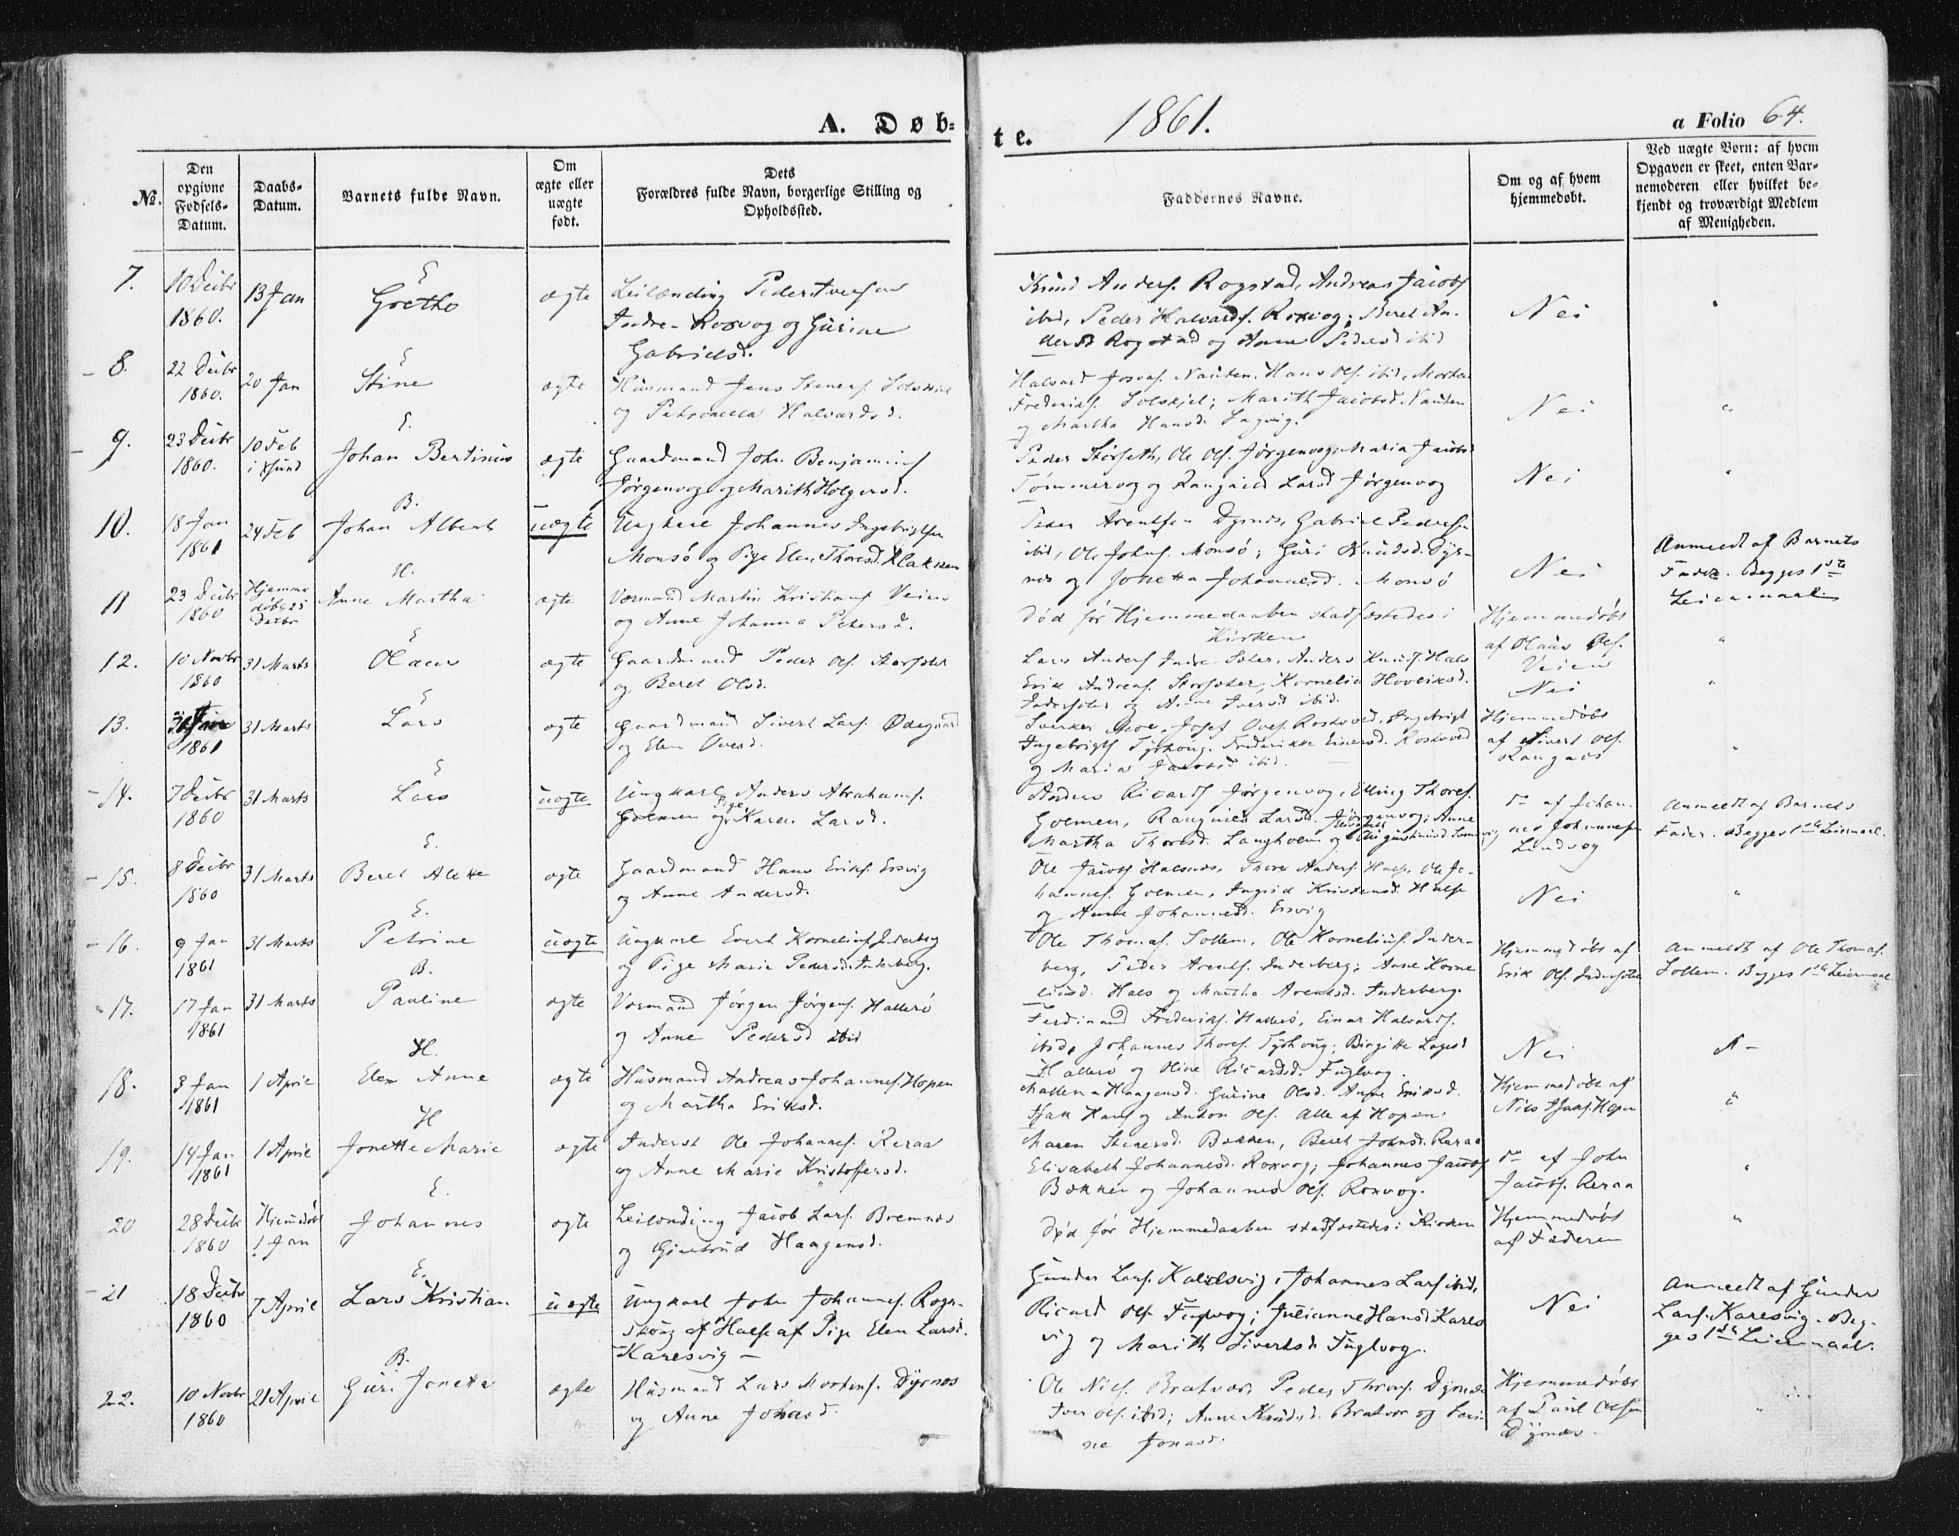 A. Døb=
te. 1861. a Folio 64.
№.
Den opgivne Fødsels-Datum.
Daabs-Datum.
Barnets fulde Navn.
Om ægte eller uægte født.
Dets Forældres fulde Navn, borgerlige Stilling og Opholdssted.
Faddernes Navne.
Om og af hvem hjemmedøbt.
Ved uægte Børn: af hvem Opgaven er skeet, enten Barnemoderen eller hvilket bekjendt og troværdigt Medlem af Menigheden.
7. 10 Decbr 1860. 13 Jan E Grethe ægte
Leilænding Peder Iversen
Indre-Roxvog og Gurine
Gabrielsd.
Knud Anders. Rogstad, Andreas Jacobs.
ibid, Peder Halvards. Roxvog; Beret An-
dersd Rogstad og Anne Pedersd ibid
Nei "
8. 22 Decbr 1860. 20 Jan E Stine ægte
Husmand Jens Steners. Solskjel
og Petronella Halvardsd.
Hans Ols. ibid, Morten
Frederiks. Solskjel; Marith Jacobsd. Nausten
og Martha Hansd.
Nei "
9. 23 Decbr 1860. 10 Feb i Xsund E. Johan Bertinus ægte
Gaardmand John Benjamins.
Jørgenvog og Marith Holgersd.
Peder Storseth, Ole Ols. Jørgenvog, Maria Jacobsd
Tømmervog og Larsd Jørgenvog
Nei "
10. 18 Jan 1861 24 Feb B. Johan Albert uægte
Ungkarl Johannes Ingebrigtsen
Monsø og Pige Elen Thoresd. Klakken
Peder Arentsen Dyrnes, Gabriel Peders.
ibid, Ole Johns. Monsø; Guri Knudsd. Dyr-
nes og Jonetta Johannesd. Monsø
Nei
Anmeldt af Barnets
Fader. Begges 1ste
Leiermaal
11 23 Decbr 1860 Hjemmedøbt 25 Decbr H. Anne Martha ægte
Martin Kristians. Veien
og Anne Johanna Petersd.
Død før Hjemmedaaben stadfæstedes i
Kirken
Hjemmedøbt
af Olaus Ols.
Veien
"
12. 10 Novbr 1860 31 Marts E Olaus ægte
Gaardmand Peder Ols. Storsoter
og Beret Olsd.
Lars Anders. Indre-Soter, Anders Knuds. Hals
Erik Andreas. Storsoter, Kornelia
og Anne Iversd ibid.
Nei "
13. 1861 31 Marts E Lars ægte
Gaardmand Sivert Lars. Ødegaard
og Elen Ovesd.
Josef Oves. Roskved, Ingebrigt
Ingebrigts. Tyskhoug. Frederikke Einersd. Roskved
og Maria Jacobsd ibid.
Hjemmedøbt
af Sivert Ols.
"
14. 7 Decbr 1860 31 Marts E Lars uægte
Ungkarl Anders Abrahams.
Golmen og Pige Karen Larsd.
Anders Ricards. Jørgenvog, Elling Thores.
Golmen, Larsd. Jørgenvog; Anne
Martha Thoresd. Langholen og
do af Johan-
nes Johannes.
Lindvog
Anmeldt af Barnets
Fader. Begges 1ste Leiermaal.
15. 8 Decbr 1860 31 Marts E. Beret ægte
Gaardmand Hans Eriks. Ersvig
og Anne Andersd.
Ole Jacobs. Halsnes, Thore Anders. Halse, Ole Jo-
hannes. Golmen, Ingrid Kristensd. Halse
og Anne Johannesd. Ersvig
Nei "
16. 9 Jan 1861 31 Marts E. Petrine uægte
Ungkarl Evert Kornelius. Inderberg
og Pige Marie Pedersd. Inderberg.
Ole Thomas. Sollem, Ole Kornelius. Inder-
berg, Peder Arents. Inderberg; Anne Korne
liusd. Hals og Martha Arentsd. Inderberg.
Hjemmedøbt af
Erik Ols. Indersoter
Anmeldt af Ole Thomas.
Sollem. Begges 1ste Leiermaal
17. 17 Jan 1861 31 Marts B. Pauline ægte
Jørgen Jørgens. Hallerø
og Anne Pedersd ibid
Ferdinand Frederiks. Hallerø, Einar Halvards.
ibid, Johannes Thores. Tyskhoug; Birgitte Lagesd
Hallerø og Oline Ricardsd. Fuglvog.
Nei
18. 3 Jan 1861 1 April H. Elen Anne ægte
Husmand Andreas Johannes. Hopen
og Martha Eriksd.
Mallena Haagensd. Gurine Olsd. Anne Eriksd.
Isak Hans. og Anton Ols. Alle af Hopen.
Hjemmedøbt af
Nils Isaks. Hopen
"
19. 14 Jan 1861 1 April H Jonette Marie ægte
Inderst Ole Johannes. Reraa
og Anne Marie Kristofersd.
Maren Stenersd. Bakken, Beret Johnsd. Reraa
Elisabeth Johannesd. Roxvog; Johannes Jacobs.
Bakken og Johannes Ols. Roxvog.
do af John
Jacobs. Reraa
"
20 28 Decbr 1860 Hjemdøbt 1 Jan E. Johannes ægte
Leilending Jacob Lars. Bremnes
og Gjertrud Haagensd.
Død før Hjemmedaaben stadfæstedes i Kirken
Hjemmedøbt
af Faderen
"
21 18 Decbr 1860 7 April E. Lars Kristian uægte
Ungkarl John Johannes. Rogn-
skoug af Halse af Pige Elen Larsd.
Karesvig —
Gunder Lars. Karesvig, Johannes Lars. ibid,
Ricard Ols. Fuglvog; Julianne Hansd. Kares
vig og Marith Sivertsd. Fuglvog.
Nei
Anmeldt af Gunder
Lars. Karesvig. Beg-
ges 1ste Leiermaal.
22. 10 Novbr 1860 21 April B. Guri Jonetta ægte
Husmand Lars Mortens. Dyrnes
og Anne Jonasd.
Ole Nils. Bratvær, Peder Dyrnes
Iver Ols. ibid; Anne Knudsd. Bratvær og
ne Jonasd.
Hjemmedøbt
af Paul Olsen
Dyrnes.
"